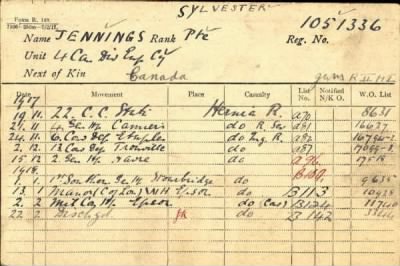 FORM R. 149.
SYLVESTER
Name JENNINGS Rank Pte Reg. No. 1051336
Unit 4 Ca Dis Ey Cy
Next of Kin Canada
Date Movement Casualty List No. Notified N/K O. W.O. List
1917
19 11 22 C.C. Stn Hernia R. a70 8631
21.11 4 Gen Hp Camiers do R. Sev a81 16627
24.11 6 Con Dep Etaples do Ing R. a82
2.12 13 Con Dep Trouville do a87
15 12 2 Gen Hp Havre do A96 17518
1918
1.1 1st Sou Gen Hp Stourbridge do 9635
13.1 Manor (Co Lon) W H Epsom do B113 10928
2.2 Mil Con Hp Epsom do (Cas) B124 11740
22.2 Dischgd B142